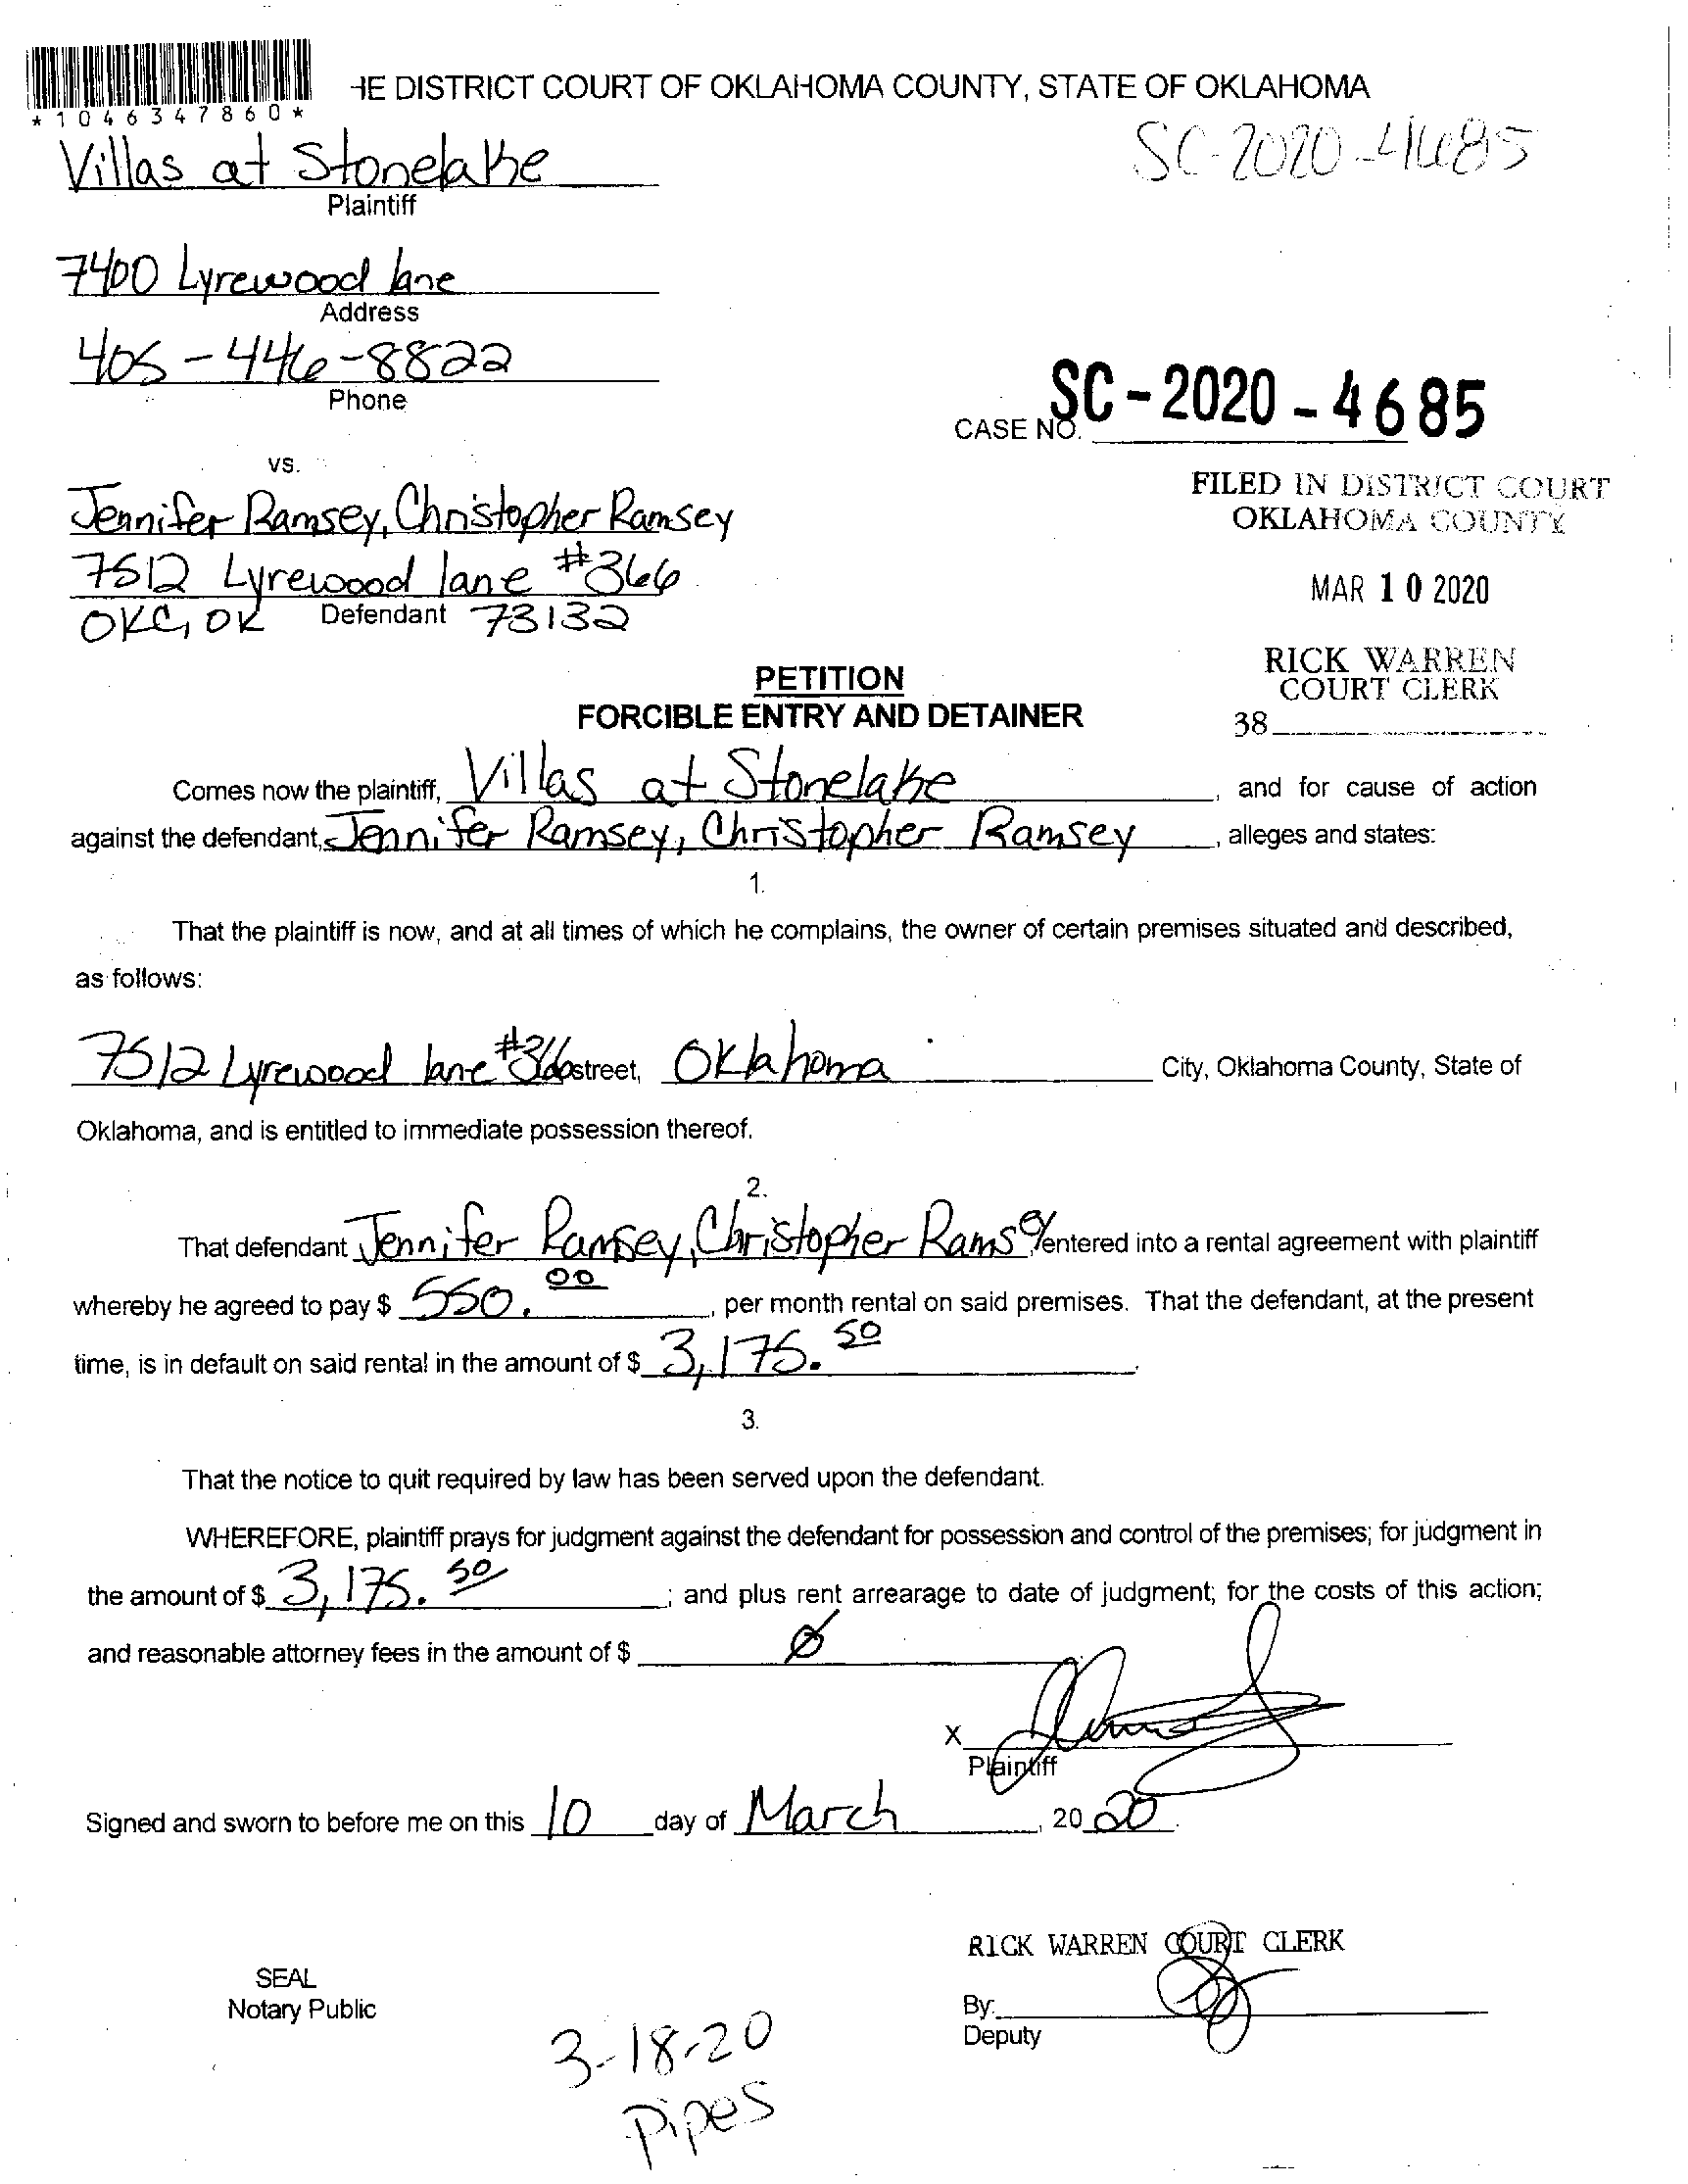 *1046347860*
HE DISTRICT COURT OF OKLAHOMA COUNTY, STATE OF OKLAHOMA
SC-2020-4685
Villas at Stonelake
Plaintiff
7400 Lyrewood lane
Address
405-446-8822
Phone
CASE NO. SC-2020-4685
vs.
FILED IN DISTRICT COURT
OKLAHOMA COUNTY
Jennifer Ramsey, Christopher Ramsey
7512 Lyrewood lane #366
OKC, OK Defendant 73132
MAR 10 2020
RICK WARREN
COURT CLERK
38
PETITION
FORCIBLE ENTRY AND DETAINER
Comes now the plaintiff, Villas at Stonelake, and for cause of action
against the defendant, Jennifer Ramsey, Christopher Ramsey, alleges and states:
1.
That the plaintiff is now, and at all times of which he complains, the owner of certain premises situated and described,
as follows:
7512 Lyrewood lane #366 street, Oklahoma City, Oklahoma County, State of
Oklahoma, and is entitled to immediate possession thereof.
2.
That defendant Jennifer Ramsey, Christopher Ramsey entered into a rental agreement with plaintiff
whereby he agreed to pay $ 550.00, per month rental on said premises. That the defendant, at the present
time, is in default on said rental in the amount of $ 3,175.50.
3.
That the notice to quit required by law has been served upon the defendant.
WHEREFORE, plaintiff prays for judgment against the defendant for possession and control of the premises; for judgment in
the amount of $ 3,175.50; and plus rent arrearage to date of judgment; for the costs of this action;
and reasonable attorney fees in the amount of $ Ø
X
Plaintiff
Signed and sworn to before me on this 10 day of March, 2020.
RICK WARREN COURT CLERK
SEAL
Notary Public
By:
Deputy
3-18-20
Pipes